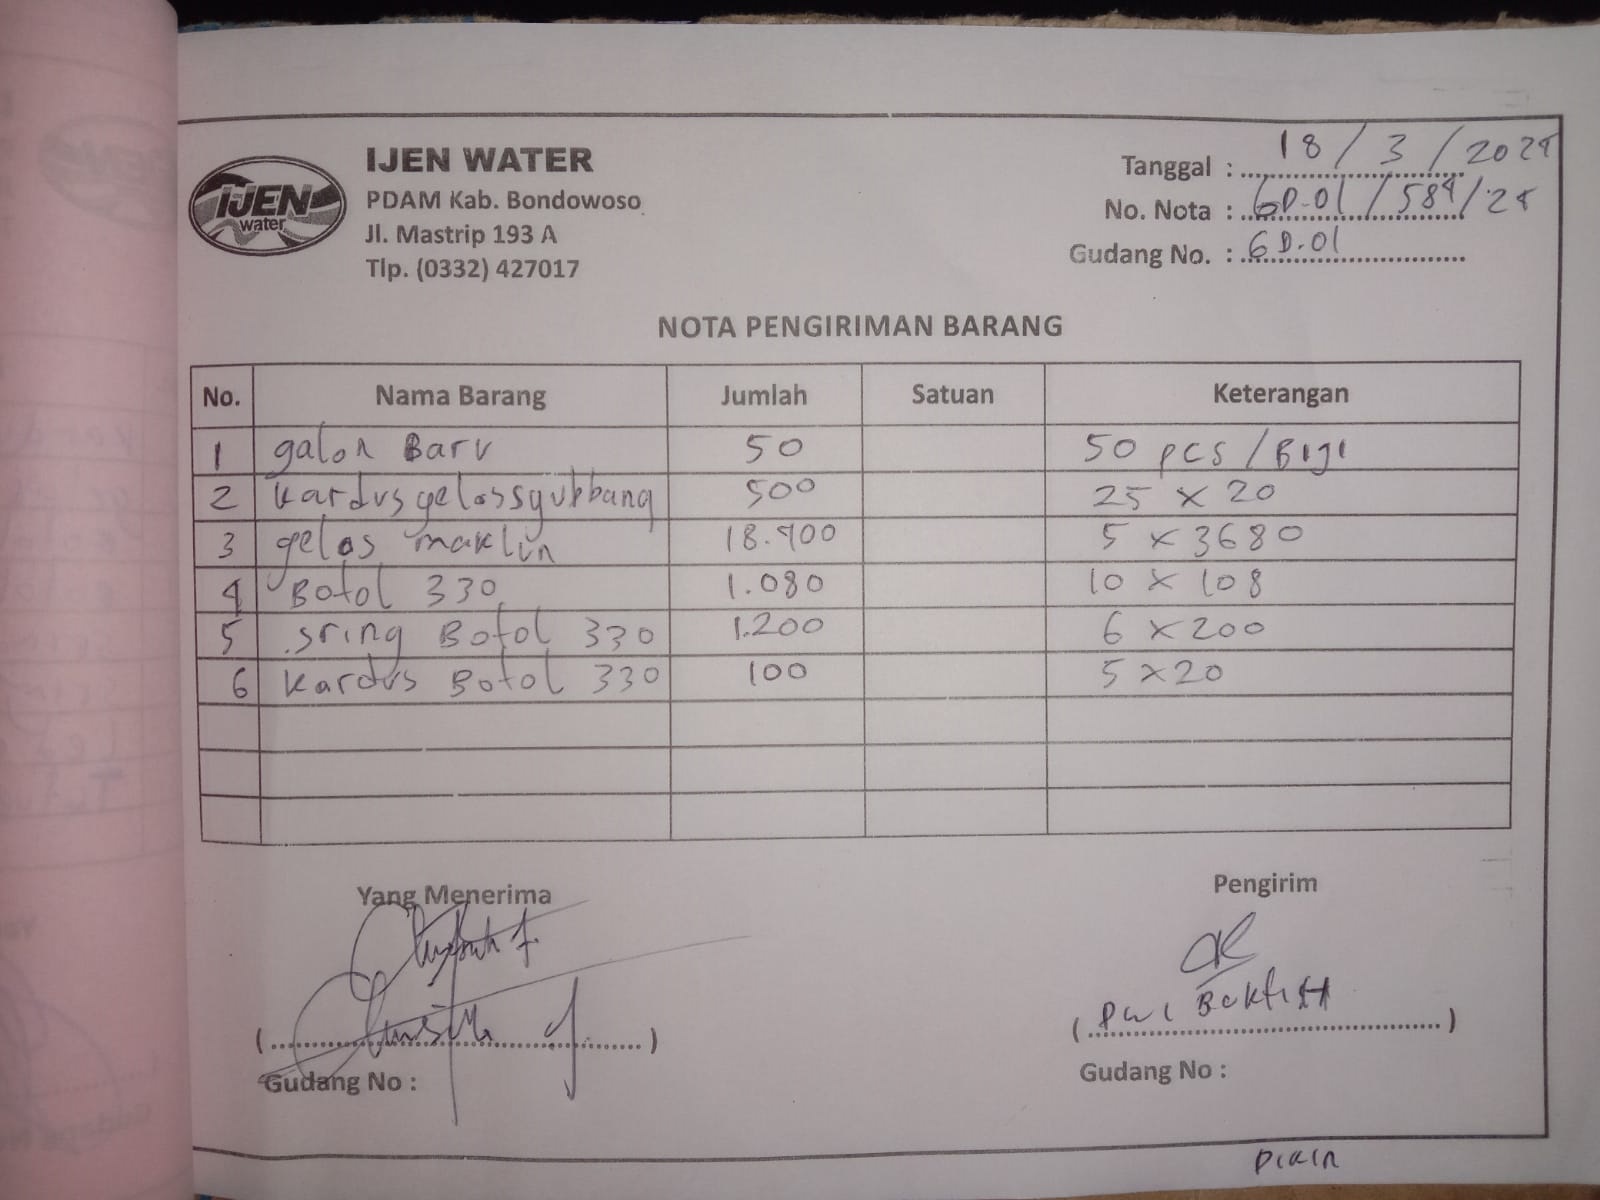 IJEN
water
IJEN WATER
PDAM Kab. Bondowoso
Jl. Mastrip 193 A
Tlp. (0332) 427017
Tanggal : 18 / 3 / 2024
No. Nota : GD.01 / 584 / 24
Gudang No. : GD.01
NOTA PENGIRIMAN BARANG
No. Nama Barang Jumlah Satuan Keterangan
1 galon Baru 50 50 pcs / Biji
2 kardus gelas 500 25 x 20
3 gelas maklin 18.400 5 x 3680
4 Botol 330 1.080 10 x 108
5 sring Botol 330 1.200 6 x 200
6 kardus Botol 330 100 5 x 20
Yang Menerima
Pengirim
(..........)
(..........)
Gudang No :
Gudang No :